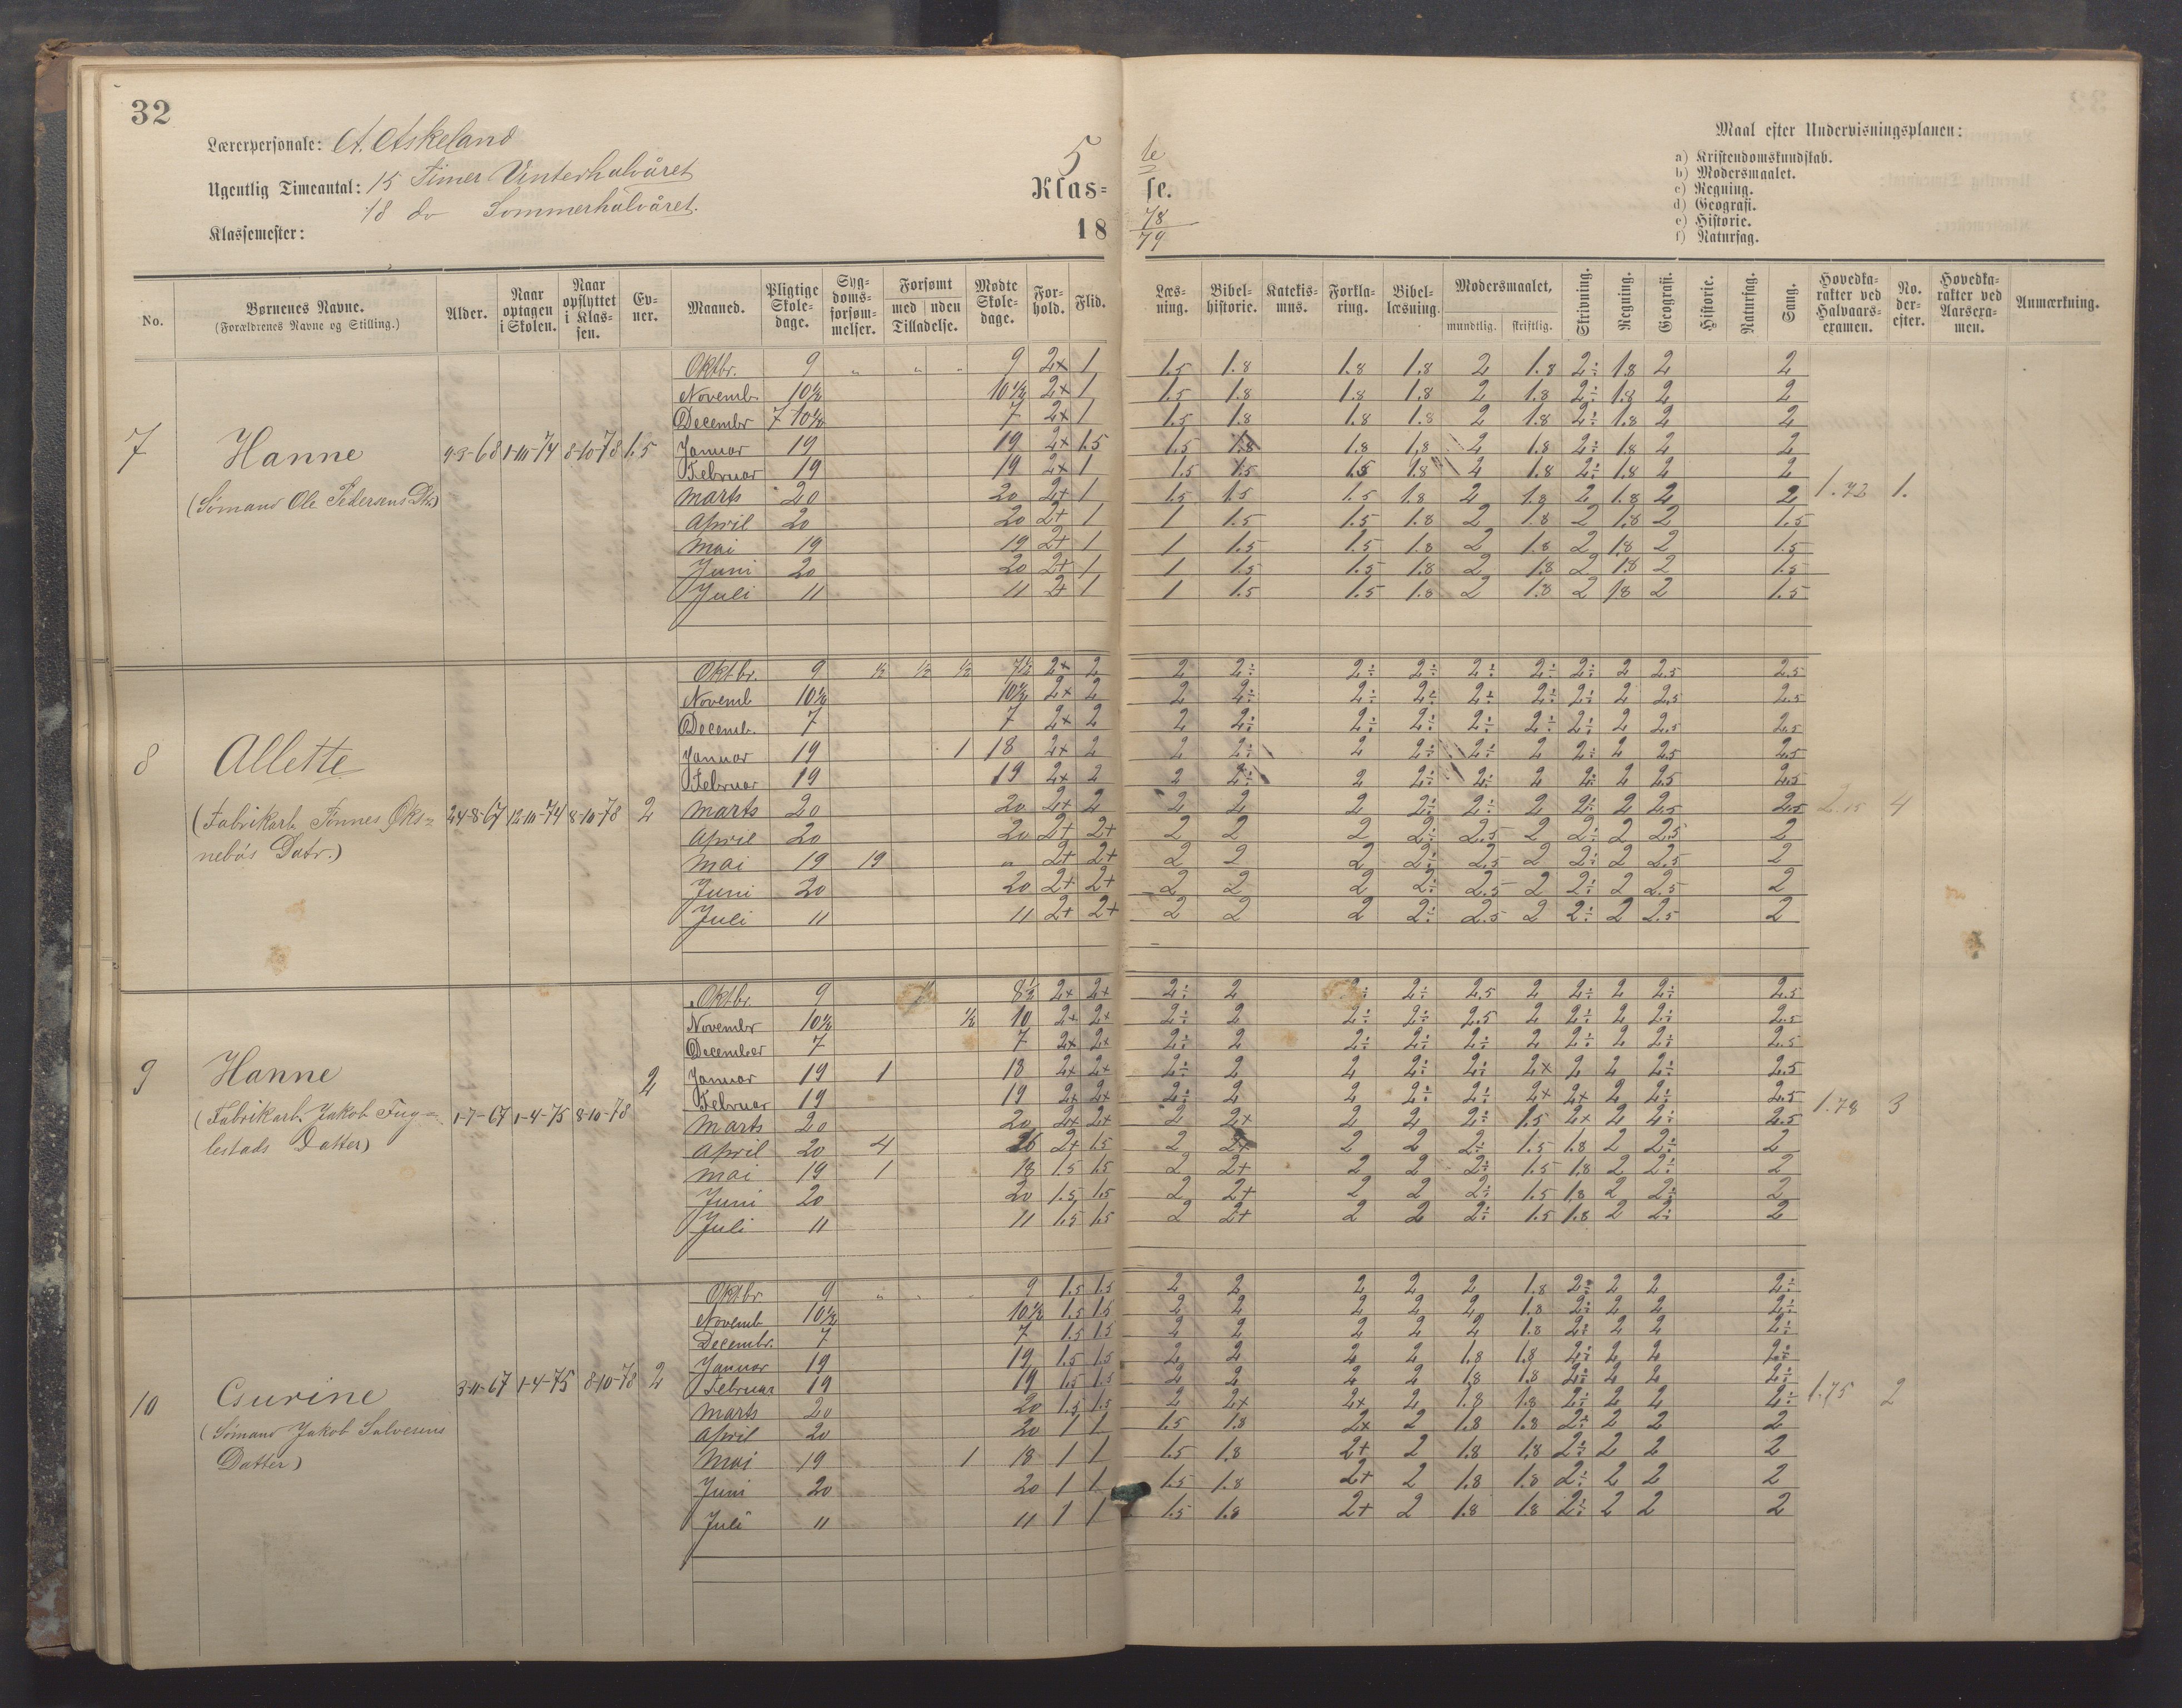 32
Lærerpersonale: A. Askeland
Ugentlig Timeantal: 15 Timer Vinterhalvåret
18 do Sommerhalvåret.
Klassemester:
5 te
Klas= se.
18 78/79
Maal efter Undervisningsplanen:
a) Kristendomskundskab.
b) Modersmaalet.
c) Regning.
d) Geografi.
e) Historie.
f) Naturfag.
No. | Børnenes Navne. (Forældrenes Navne og Stilling.) | Alder. | Naar optagen i Skolen. | Naar opflyttet i Klassen. | Evner. | Maaned. | Pligtige Skoledage. | Sygdomsforsømmelser. | Forsømt med | uden Tilladelse. | Mødte Skoledage. | Forhold. | Flid. | Læsning. | Bibelhistorie. | Katekismus. | Forklaring. | Bibellæsning. | Modersmaalet, mundtlig. | skriftlig. | Skrivning. | Regning. | Geografi. | Historie. | Naturfag. | Sang. | Hovedkarakter ved Halvaarsexamen. | No. derefter. | Hovedkarakter ved Aarsexamen. | Anmærkning.
7 Hanne (Sømand Ole Pedersens Dtr.) 9-3-68 1-10-74 8-10-78 1.5
Oktbr. 9 " " " 9 2+ 1 1.5 1.8 1.8 1.8 2 1.8 2÷ 1.8 2 2
Novembr. 10½ 10½ 2+ 1 1.5 1.8 1.8 1.8 2 1.8 2÷ 1.8 2 2
Decembr 7 10½ 7 2+ 1 1.5 1.8 1.8 1.8 2 1.8 2÷ 1.8 2 2
Januar 19 19 2+ 1.5 1.5 1.8 1.8 1.8 2 1.8 2÷ 1.8 2 2
Februar 19 19 2+ 1 1.5 1.5 1.5 1.8 2 1.8 2÷ 1.8 2 2
Marts 20 20 2+ 1 1.5 1.5 1.5 1.8 2 1.8 2 1.8 2 2 1.72 1.
April 20 20 2+ 1 1 1.5 1.5 1.8 2 1.8 2 1.8 2 1.5
Mai 19 19 2+ 1 1 1.5 1.5 1.8 2 1.8 2 1.8 2 1.5
Juni 20 20 2+ 1 1 1.5 1.5 1.8 2 1.8 2 1.8 2 1.5
Juli 11 11 2+ 1 1 1.5 1.5 1.8 2 1.8 2 1.8 2 1.5
8 Allette (Fabrikarb. Tønnes Øksnebøs Datr.) 24-8-67 12-10-74 8-10-78 2
Oktbr. 9 ½ ½ ½ 7½ 2+ 2 2 2÷ 2÷ 2÷ 2÷ 2÷ 2÷ 2 2.5 2.5
Novemb 10½ 10½ 2+ 2 2 2÷ 2÷ 2÷ 2÷ 2÷ 2÷ 2 2.5 2.5
Decemb. 7 7 2+ 2 2 2÷ 2÷ 2÷ 2÷ 2÷ 2÷ 2 2.5 2.5
Januar 19 1 18 2+ 2 2 2÷ 2 2÷ 2÷ 2 2÷ 2 2.5 2.5
Februar 19 19 2+ 2 2 2÷ 2 2÷ 2÷ 2 2÷ 2 2.5 2.5
Marts 20 20 2+ 2 2 2 2 2÷ 2÷ 2 2÷ 2 2.5 2.5 2.15 4
April 20 20 2+ 2+ 2 2 2 2÷ 2.5 2 2÷ 2 2.5 2
Mai 19 19 " 2+ 2+ 2 2 2 2÷ 2.5 2 2÷ 2 2.5 2
Juni 20 20 2+ 2+ 2 2 2 2÷ 2.5 2 2÷ 2 2.5 2
Juli 11 11 2+ 2+ 2 2 2 2÷ 2.5 2 2÷ 2 2.5 2
9 Hanne (Fabrikarb. Jakob Fuglestads Datter) 1-7-67 1-4-75 8-10-78 2
Oktbr. 9 ½ 8½ 2+ 2+ 2÷ 2 2÷ 2÷ 2.5 2 2÷ 2 2÷ 2.5
Novembr 10½ ½ 10 2+ 2+ 2÷ 2 2÷ 2÷ 2.5 2 2÷ 2 2÷ 2.5
December 7 7 2+ 2+ 2÷ 2 2÷ 2÷ 2÷ 2 2÷ 2 2÷ 2.5
Januar 19 1 18 2+ 2+ 2÷ 2 2 2÷ 2÷ 2+ 2 2 2÷ 2.5
Februar 19 19 2+ 2+ 2÷ 2 2 2÷ 2÷ 2+ 2+ 2 2÷ 2.5
Marts 20 20 2+ 2+ 2 2+ 2 2 2÷ 1.5 2+ 2 2÷ 2.5 1.78 3
April 20 4 16 2+ 1.5 2 2+ 2 2 2÷ 1.5 1.8 2 2÷ 2
Mai 19 1 18 1.5 1.5 2 2+ 2 2 2÷ 1.5 1.8 2 2÷ 2
Juni 20 20 1.5 1.5 2 2+ 2 2 2÷ 1.5 1.8 2 2÷ 2
Juli 11 11 1.5 1.5 2 2+ 2 2 2÷ 1.5 1.8 2 2÷ 2
10 Gurine (Sømand Jakob Salvesens Datter) 3-11-67 1-4-75 8-10-78 2
Oktbr 9 " " " 9 1.5 1.5 2 2 2 2 2 1.8 2÷ 2 2 2÷
Novemb 10½ 10½ 1.5 1.5 2 2 2 2 2 1.8 2÷ 2 2 2÷
Decembr. 7 7 1.5 1.5 2 2 2 2 2 1.8 2÷ 2 2 2÷
Januar 19 19 1.5 1.5 2 2 2 2 1.8 1.8 2÷ 2 2 2÷
Februar 19 19 1.5 1.5 2 2 2 2 1.8 1.8 2÷ 2 2 2÷
Marts 20 20 1.5 1.5 2 2+ 2+ 2 1.8 1.8 2÷ 2 2 2÷ 1.75 2
April 20 20 1 1 1.5 1.8 2+ 2 1.8 1.8 2÷ 2 2 2
Mai 19 1 18 1 1 1.5 1.8 2+ 2 1.8 1.8 2÷ 2 2 2
Juni 20 20 1 1 1.5 1.8 2+ 2 1.8 1.8 2÷ 2 2 2
Juli 11 11 1 1 1.5 1.8 2+ 2 1.8 1.8 2÷ 2 2 2